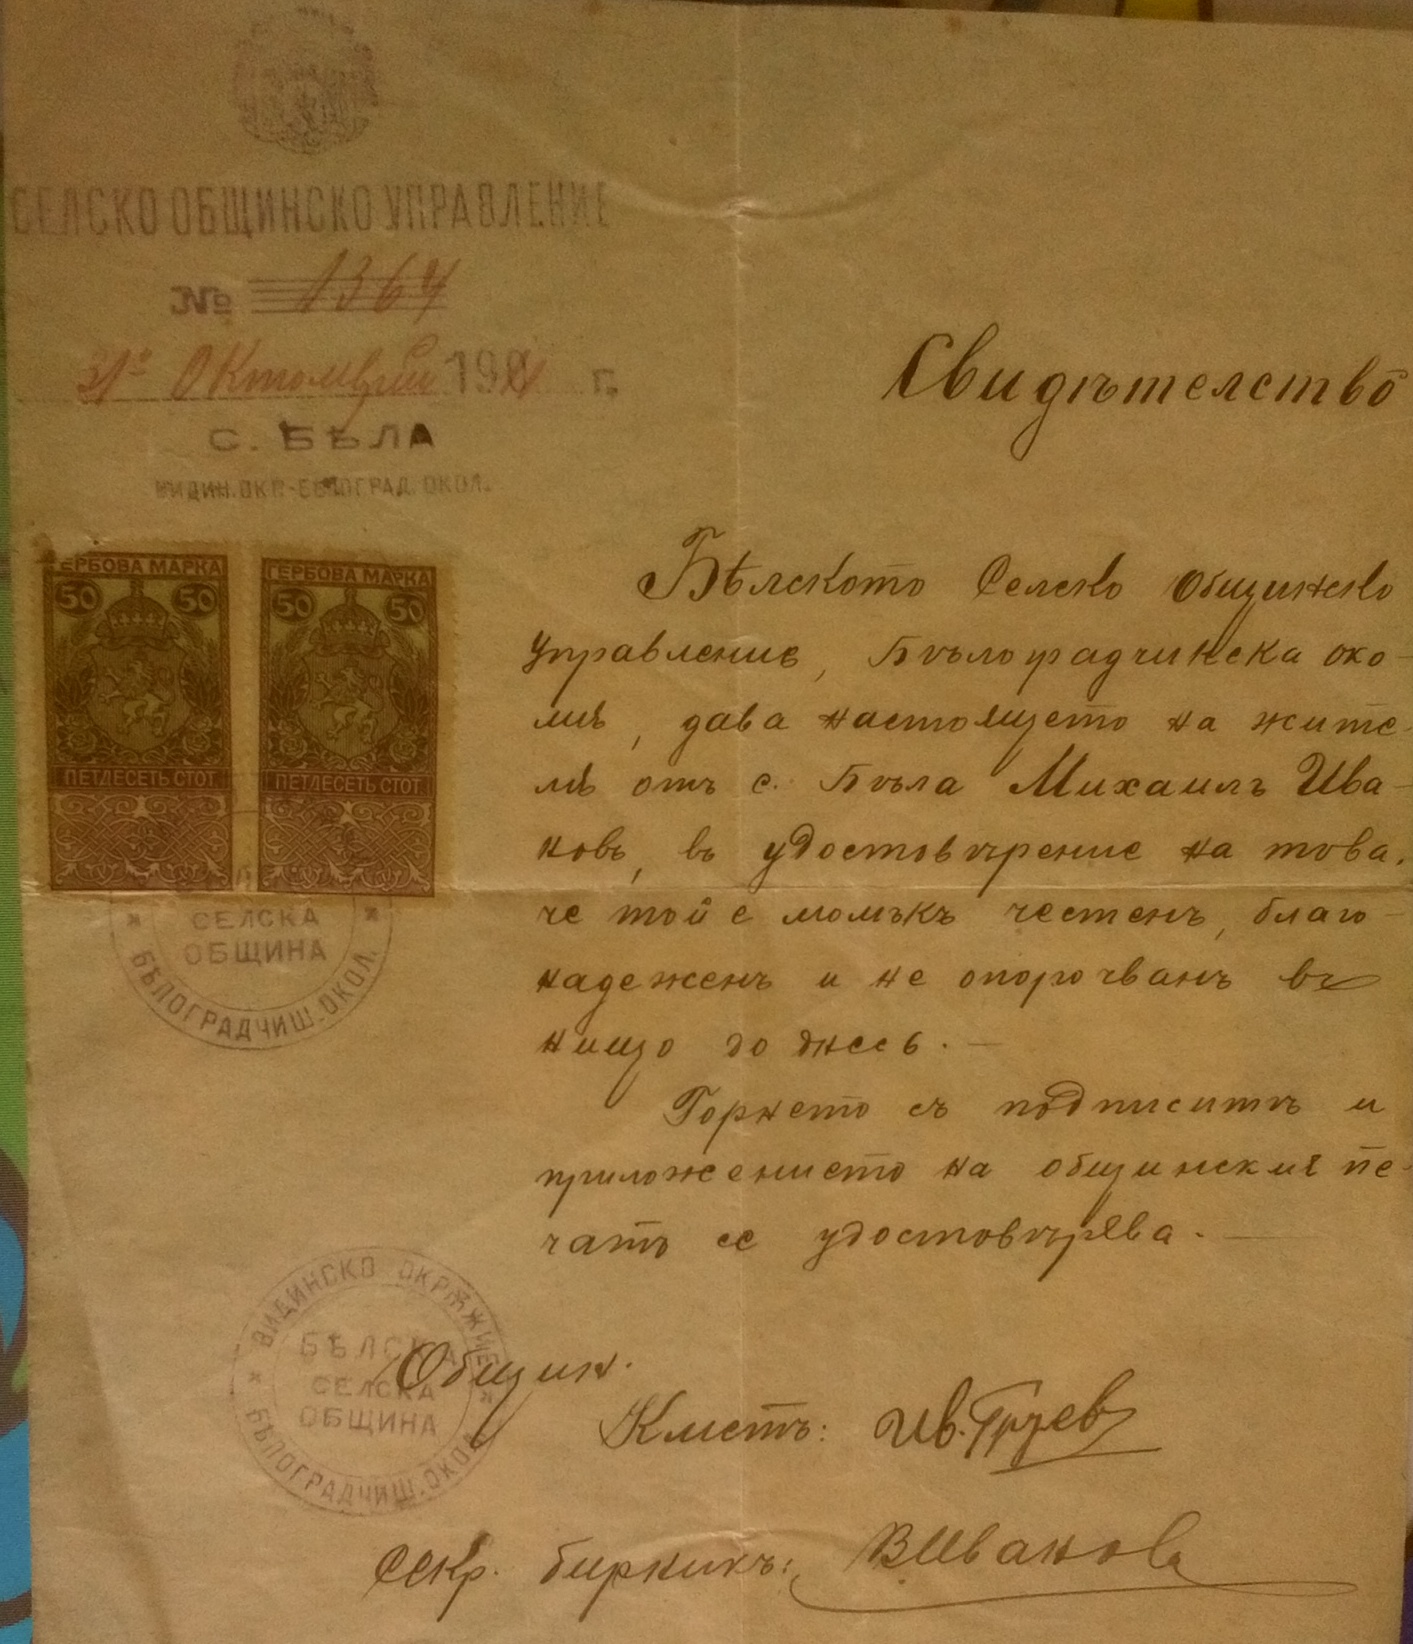 СЕЛСКО ОБЩИНСКО УПРАВЛЕНИЕ
№ 1364
31й Октомврий 19 г.
с. БѢЛА
ВИДИН. ОКР.-БѢЛОГРАД. ОКОЛ.
Свидѣтелство
ГЕРБОВА МАРКА
50 50
ПЕТДЕСЕТЬ СТОТ.
ГЕРБОВА МАРКА
50 50
ПЕТДЕСЕТЬ СТОТ.
Бѣлското Селско Общинско
управление, Бѣлоградчинска око-
лия, дава настоящето на жите-
ля отъ с. Бѣла Михаилъ Ива-
новъ, въ удостовѣрение на това,
че той е момъкъ честенъ, благо-
надеженъ и не опорочванъ въ
нищо до днесь. —
Горнето съ подписитѣ и
приложението на общинския пе-
чатъ се удостовѣрява. —
СЕЛСКА
ОБЩИНА
БѢЛОГРАДЧИШ. ОКОЛ.
ВИДИНСКО ОКРѪЖИЕ
БѢЛСКА
СЕЛСКА
ОБЩИНА
БѢЛОГРАДЧИШ. ОКОЛ.
Общин.
Кметъ: Ив. Груев
Секр. бирникъ: В. Иванов